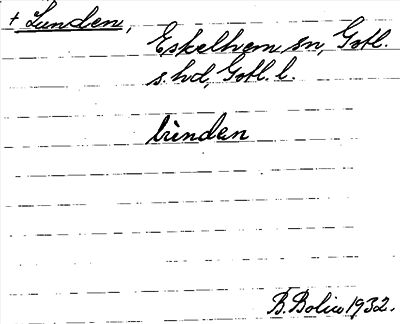 + Lunden,
Eskelhem sn, Gotl.
s. hd, Gotl. l.
lùnden
B. Bolin 1932.